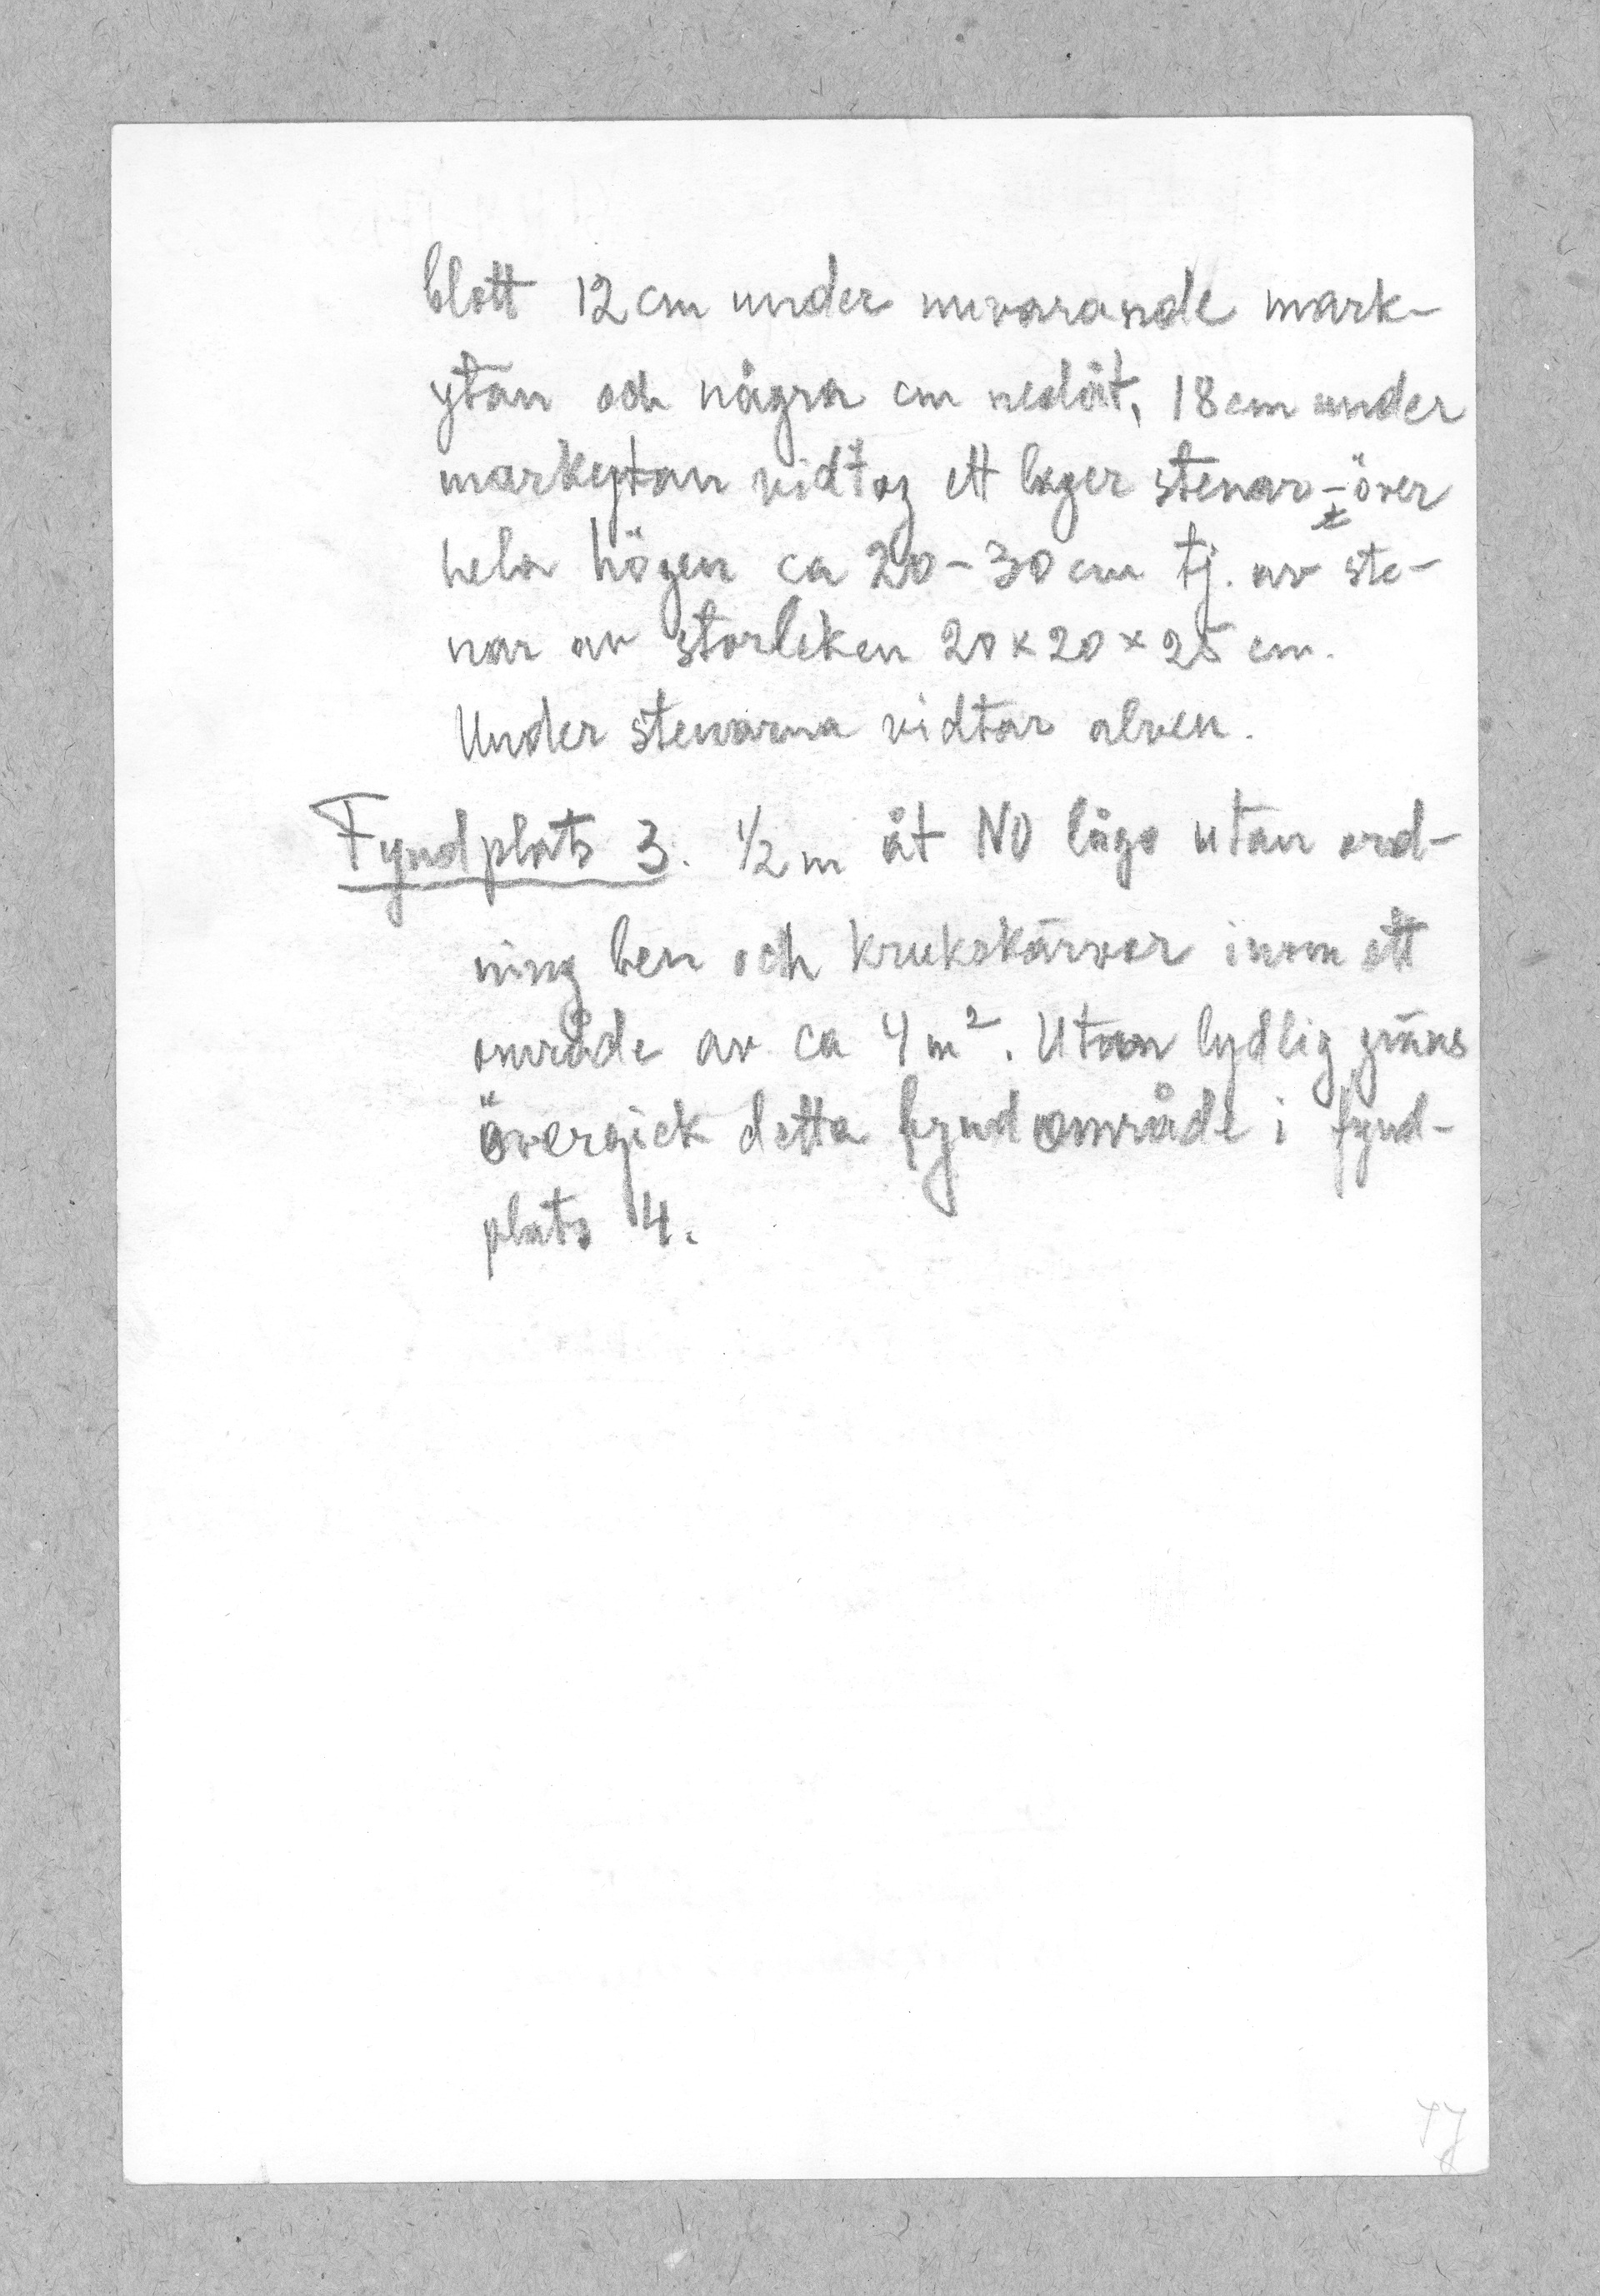 blott 12 cm under nuvarande mark-
ytan och några cm nedåt, 18 cm under
markytan vidtog ett lager stenar - över
hela högen ca 20-30 cm tj. av ste-
nar av storleken 20 x 20 x 25 cm.
Under stenarna vidtar alven.
Fyndplats 3. ½ m åt NO lågo utan ord-
ning ben och krukskärvor inom ett
område av ca 4 m². Utan tydlig gräns
övergick detta fyndområde i fynd-
plats 4.